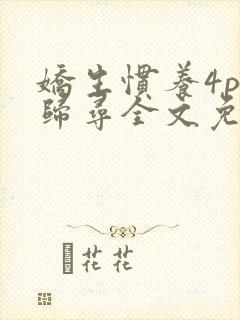 嬌生慣養4p
歸尋全文免
花花